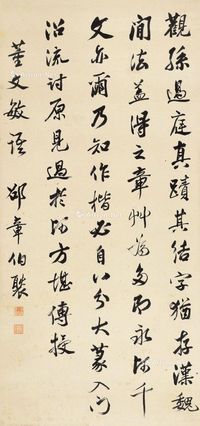 觀孫過庭真蹟其結字猶存漢魏
間法蓋得之章艸為多即永師千
文亦爾乃知作楷必自八分大篆入門
沿流討原見過於師方堪傳授
董文敏語 邵章伯褧